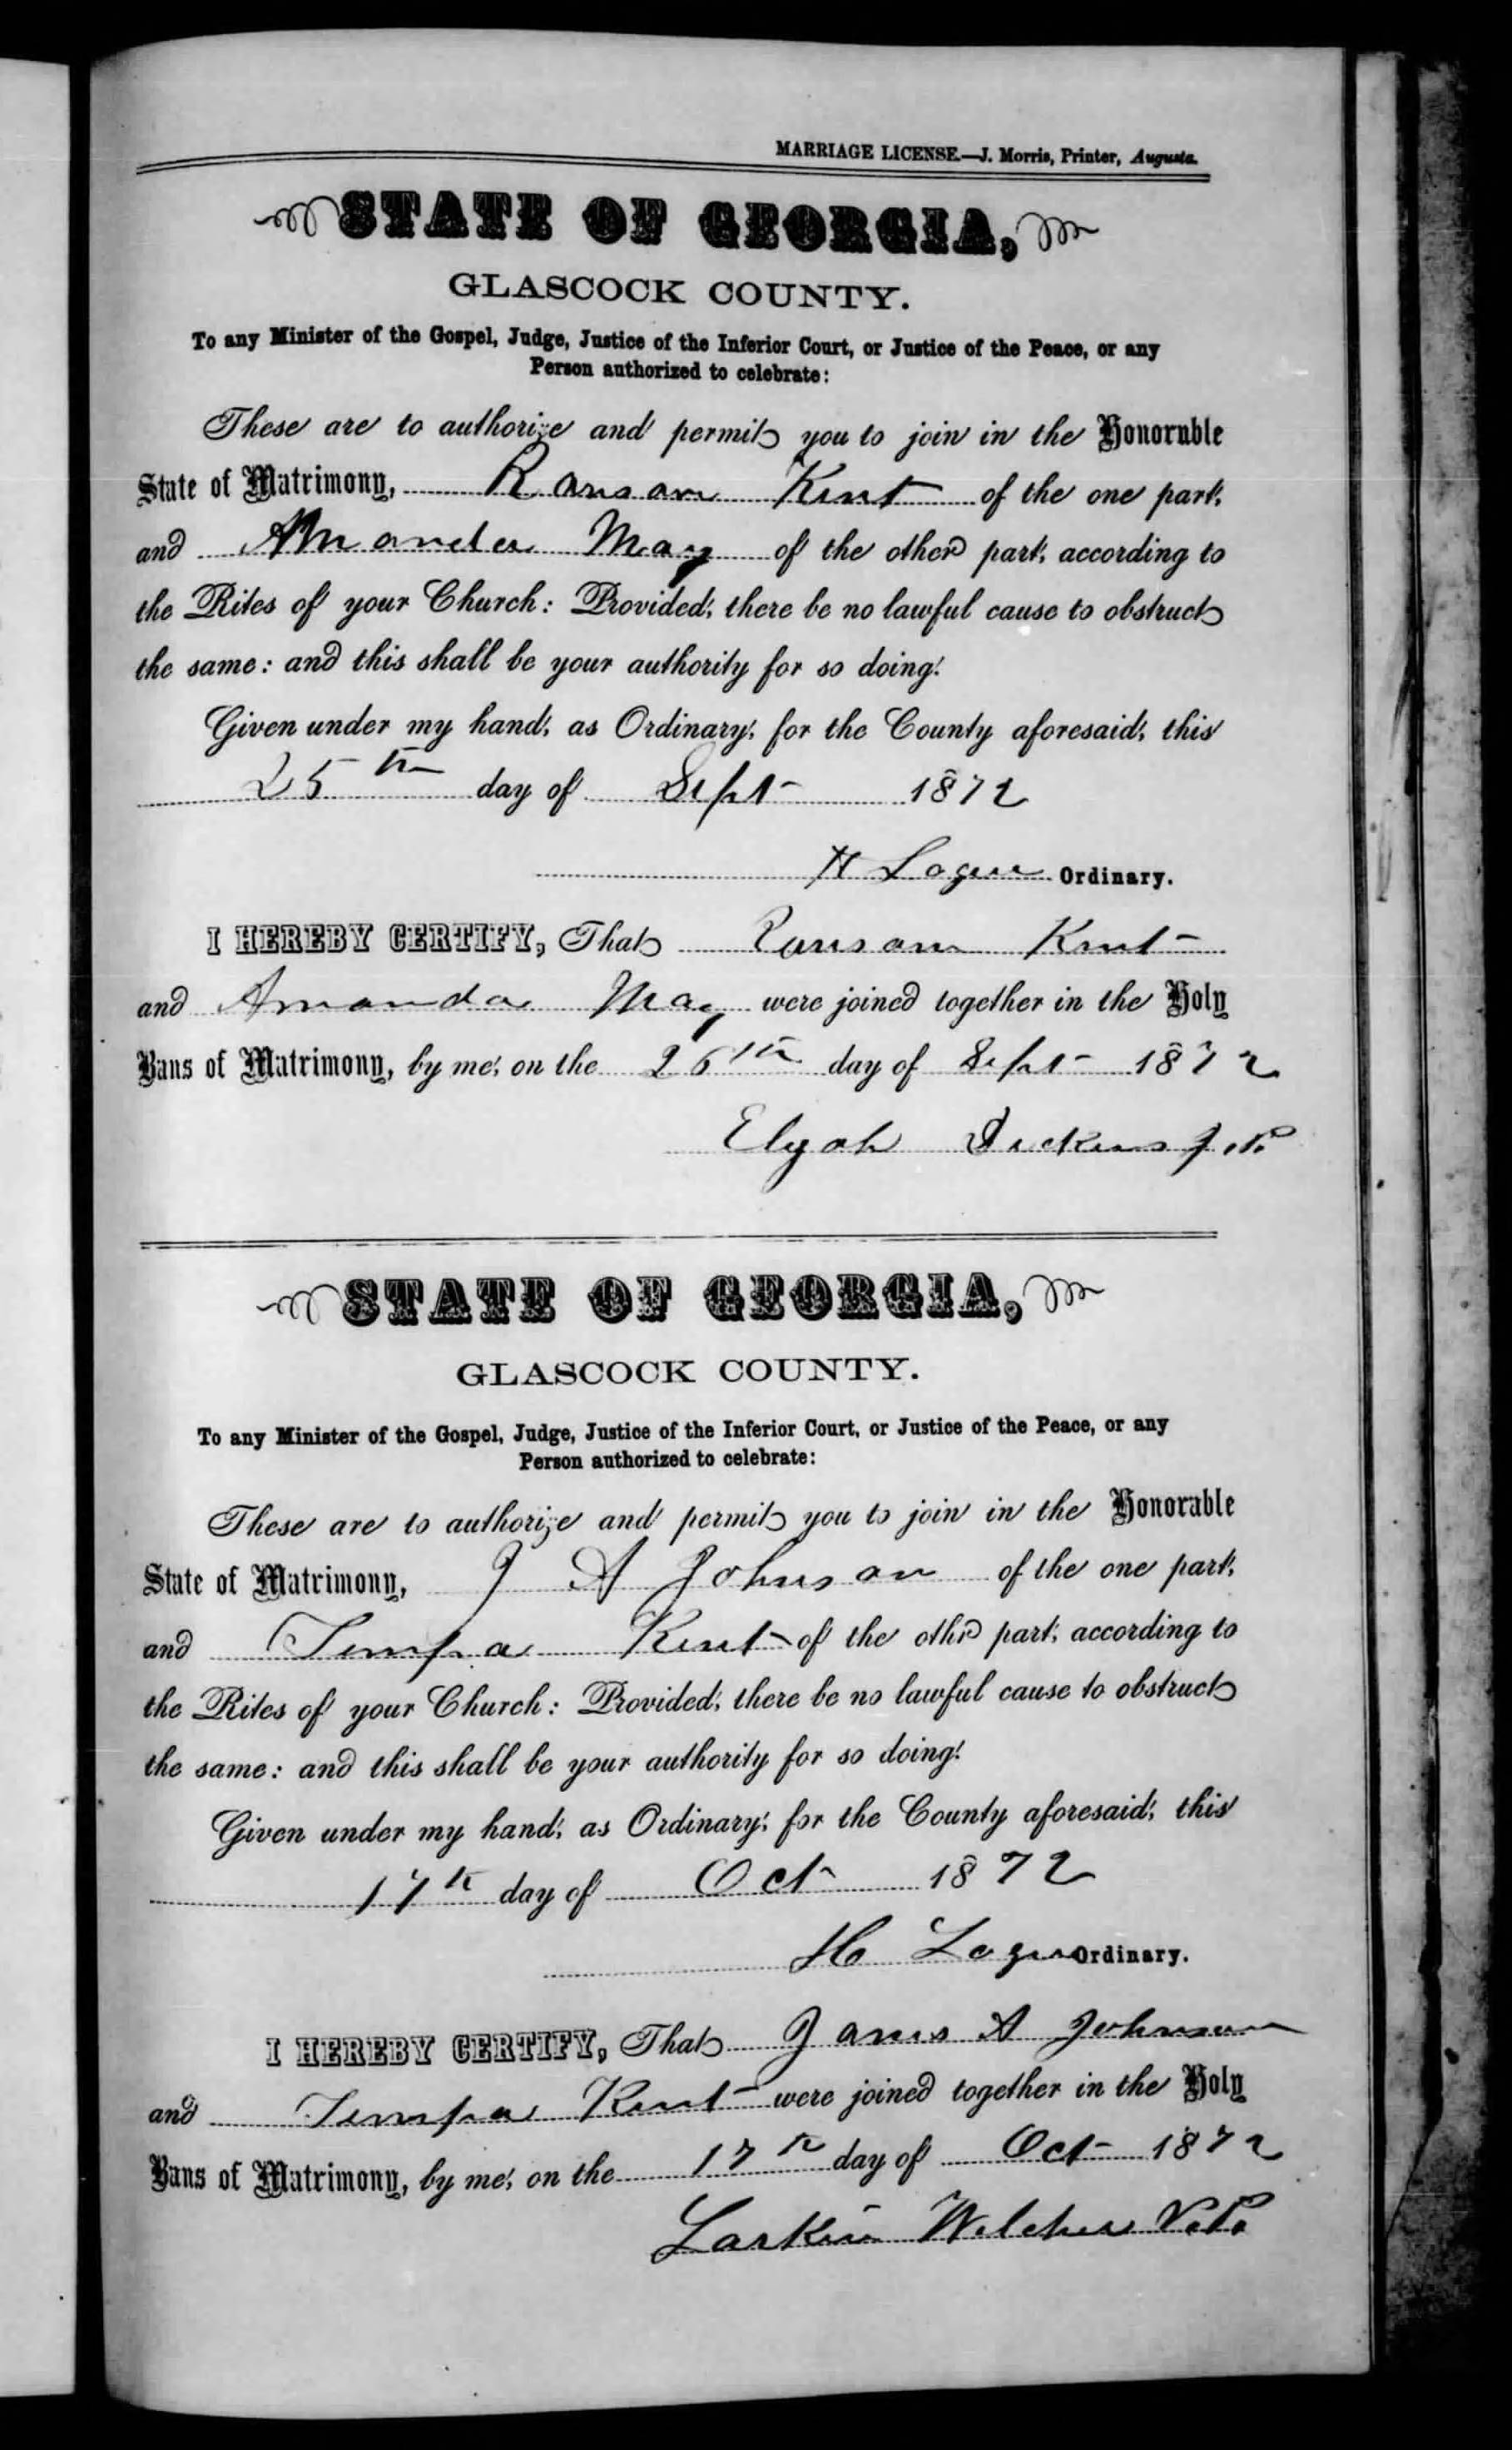 MARRIAGE LICENSE.—J. Morris, Printer, Augusta.
STATE OF GEORGIA,
GLASCOCK COUNTY.
To any Minister of the Gospel, Judge, Justice of the Inferior Court, or Justice of the Peace, or any
Person authorized to celebrate:
These are to authorize and permit you to join in the Honorable
State of Matrimony, Ransom Kent of the one part,
and Amanda May of the other part, according to
the Rites of your Church: Provided, there be no lawful cause to obstruct
the same: and this shall be your authority for so doing.
Given under my hand, as Ordinary, for the County aforesaid, this
25th day of Sept 1872
H Logue Ordinary.
I HEREBY CERTIFY, That Ransom Kent
and Amanda May were joined together in the Holy
Bans of Matrimony, by me, on the 26th day of Sept 1872
Elijah Dickens J.P.
STATE OF GEORGIA,
GLASCOCK COUNTY.
To any Minister of the Gospel, Judge, Justice of the Inferior Court, or Justice of the Peace, or any
Person authorized to celebrate:
These are to authorize and permit you to join in the Honorable
State of Matrimony, J A Johnson of the one part,
and Tempa Kent of the other part, according to
the Rites of your Church: Provided, there be no lawful cause to obstruct
the same: and this shall be your authority for so doing.
Given under my hand, as Ordinary, for the County aforesaid, this
17th day of Oct 1872
H Logue Ordinary.
I HEREBY CERTIFY, That James A Johnson
and Tempa Kent were joined together in the Holy
Bans of Matrimony, by me, on the 17th day of Oct 1872
Larkin Wilcher